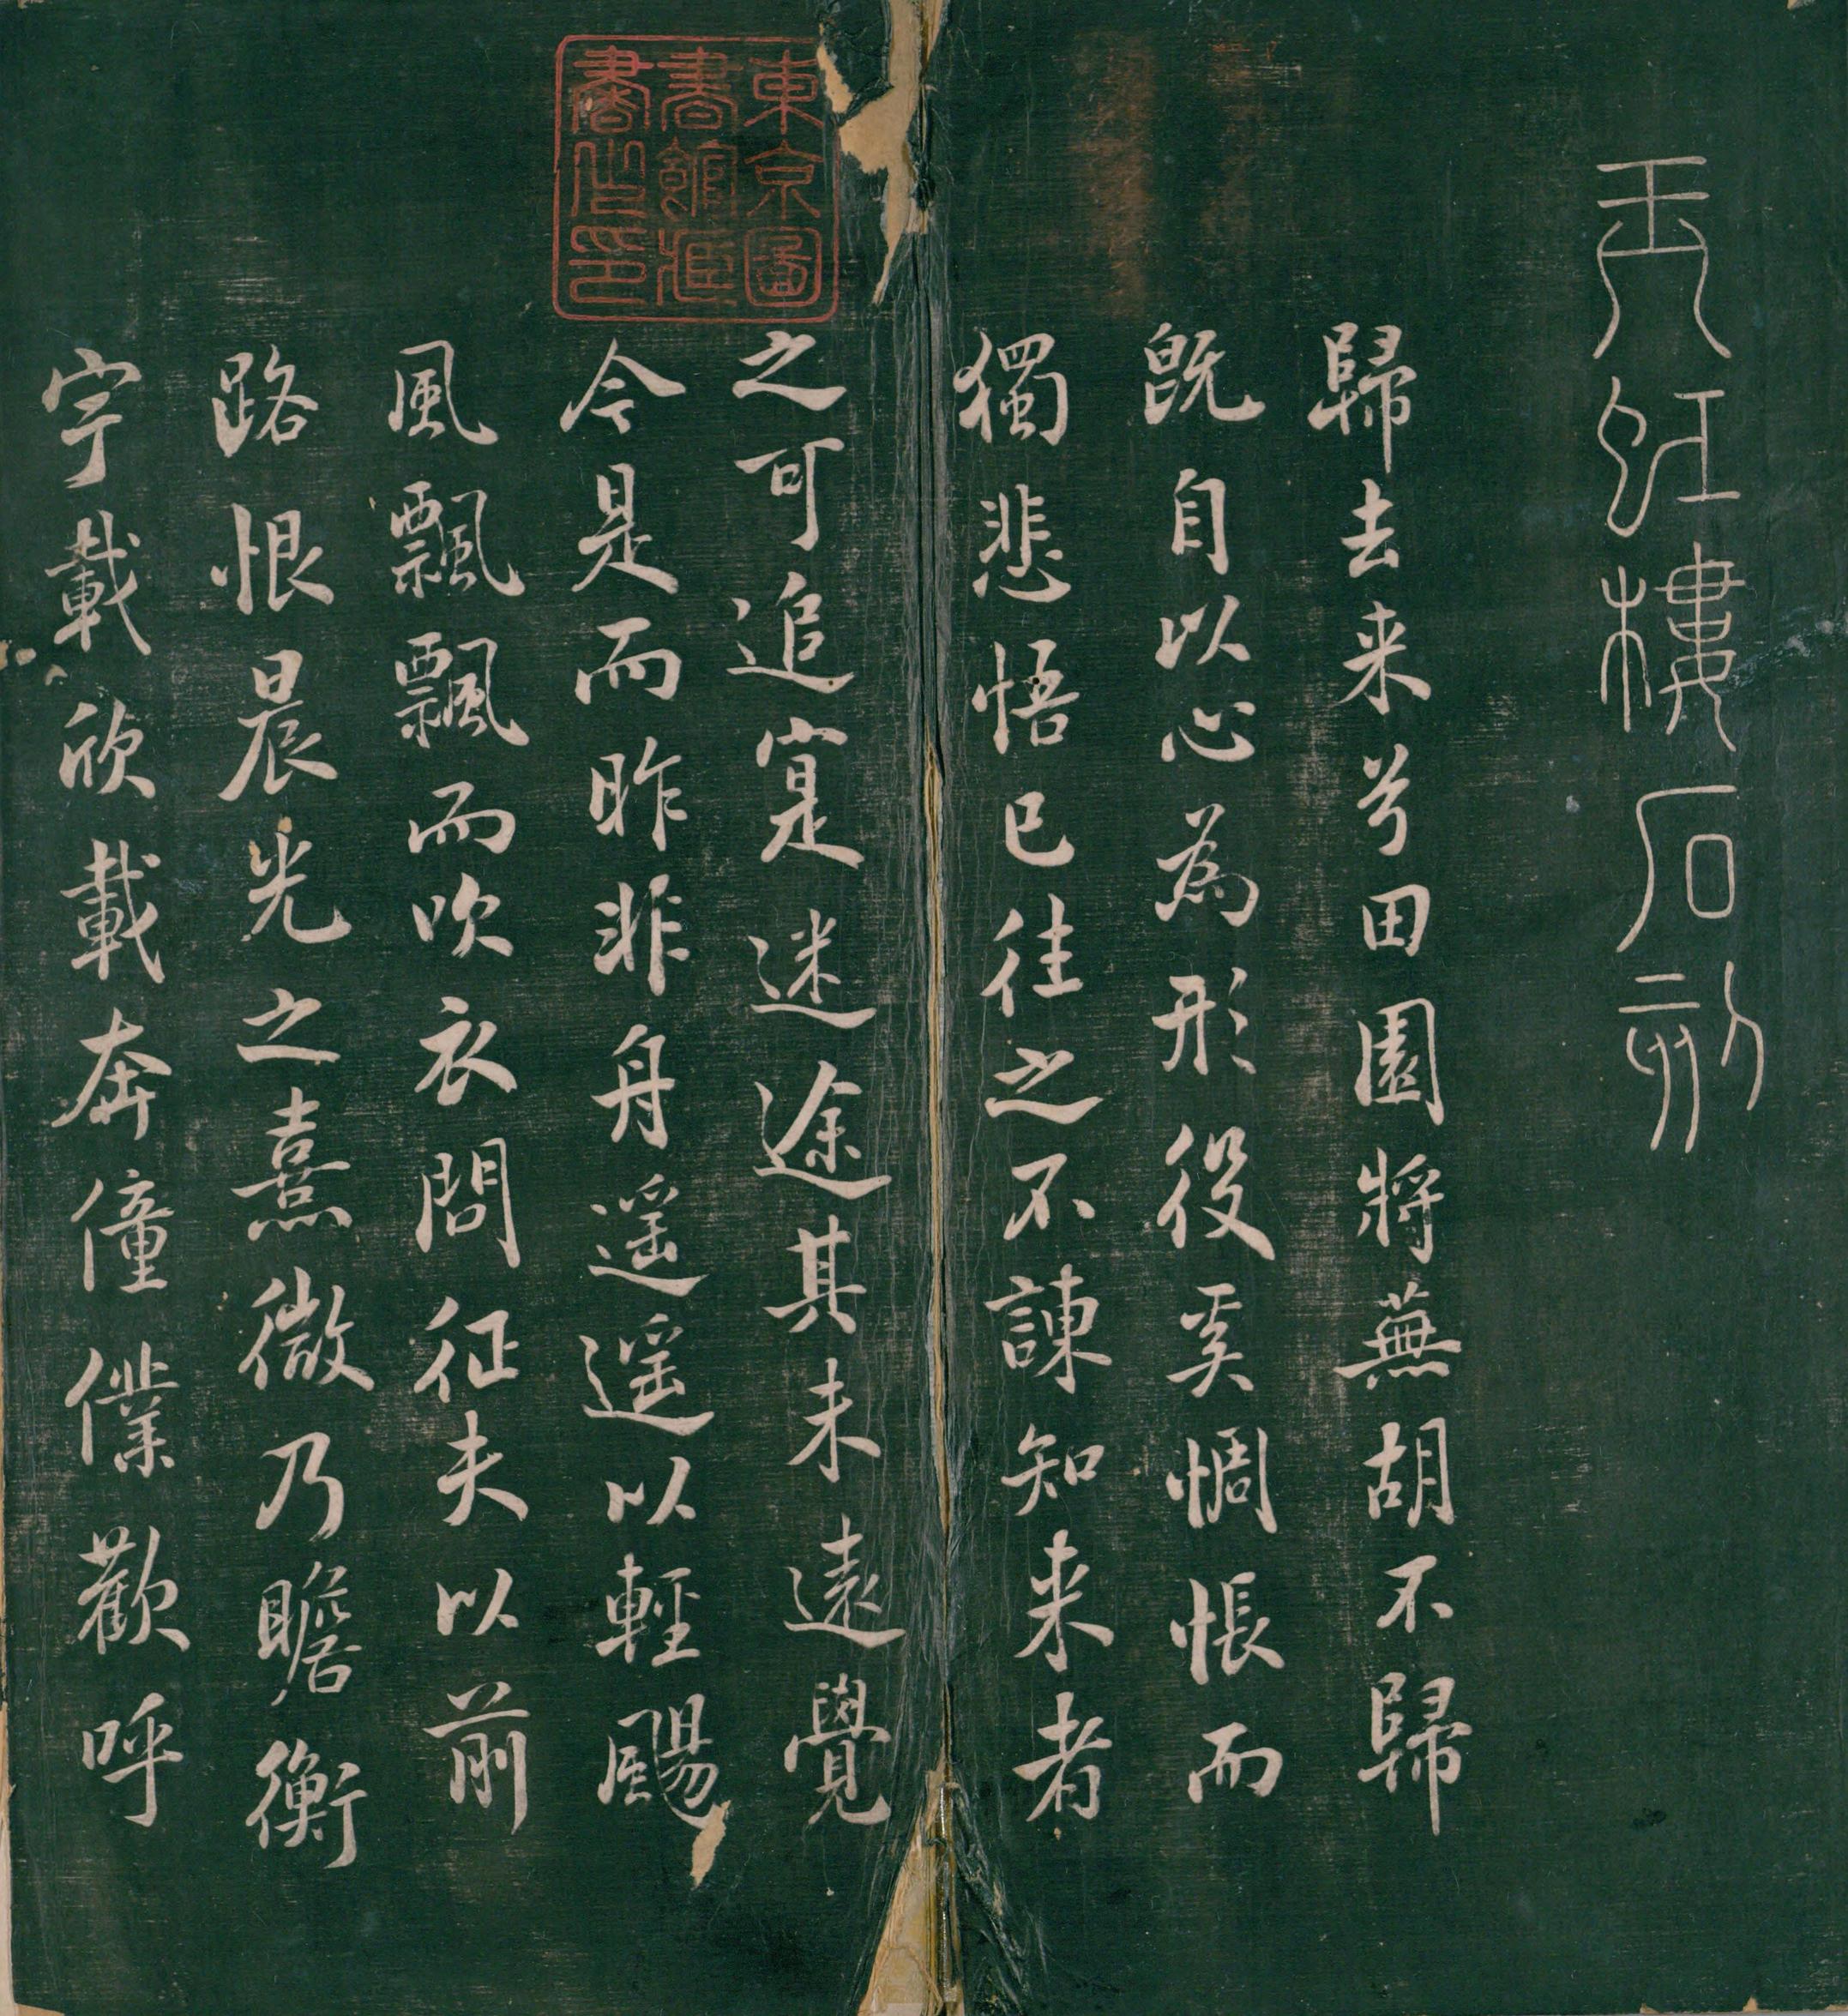 玉虹樓石刻
歸去来兮田園將蕪胡不歸
既自以心為形役奚惆悵而
獨悲悟已往之不諫知来者
之可追寔迷途其未遠覺
今是而昨非舟遥遥以輕颺
風飄飄而吹衣問征夫以前
路恨晨光之熹微乃瞻衡
宇載欣載奔僮僕歡呼
東京圖
書館藏
書之印